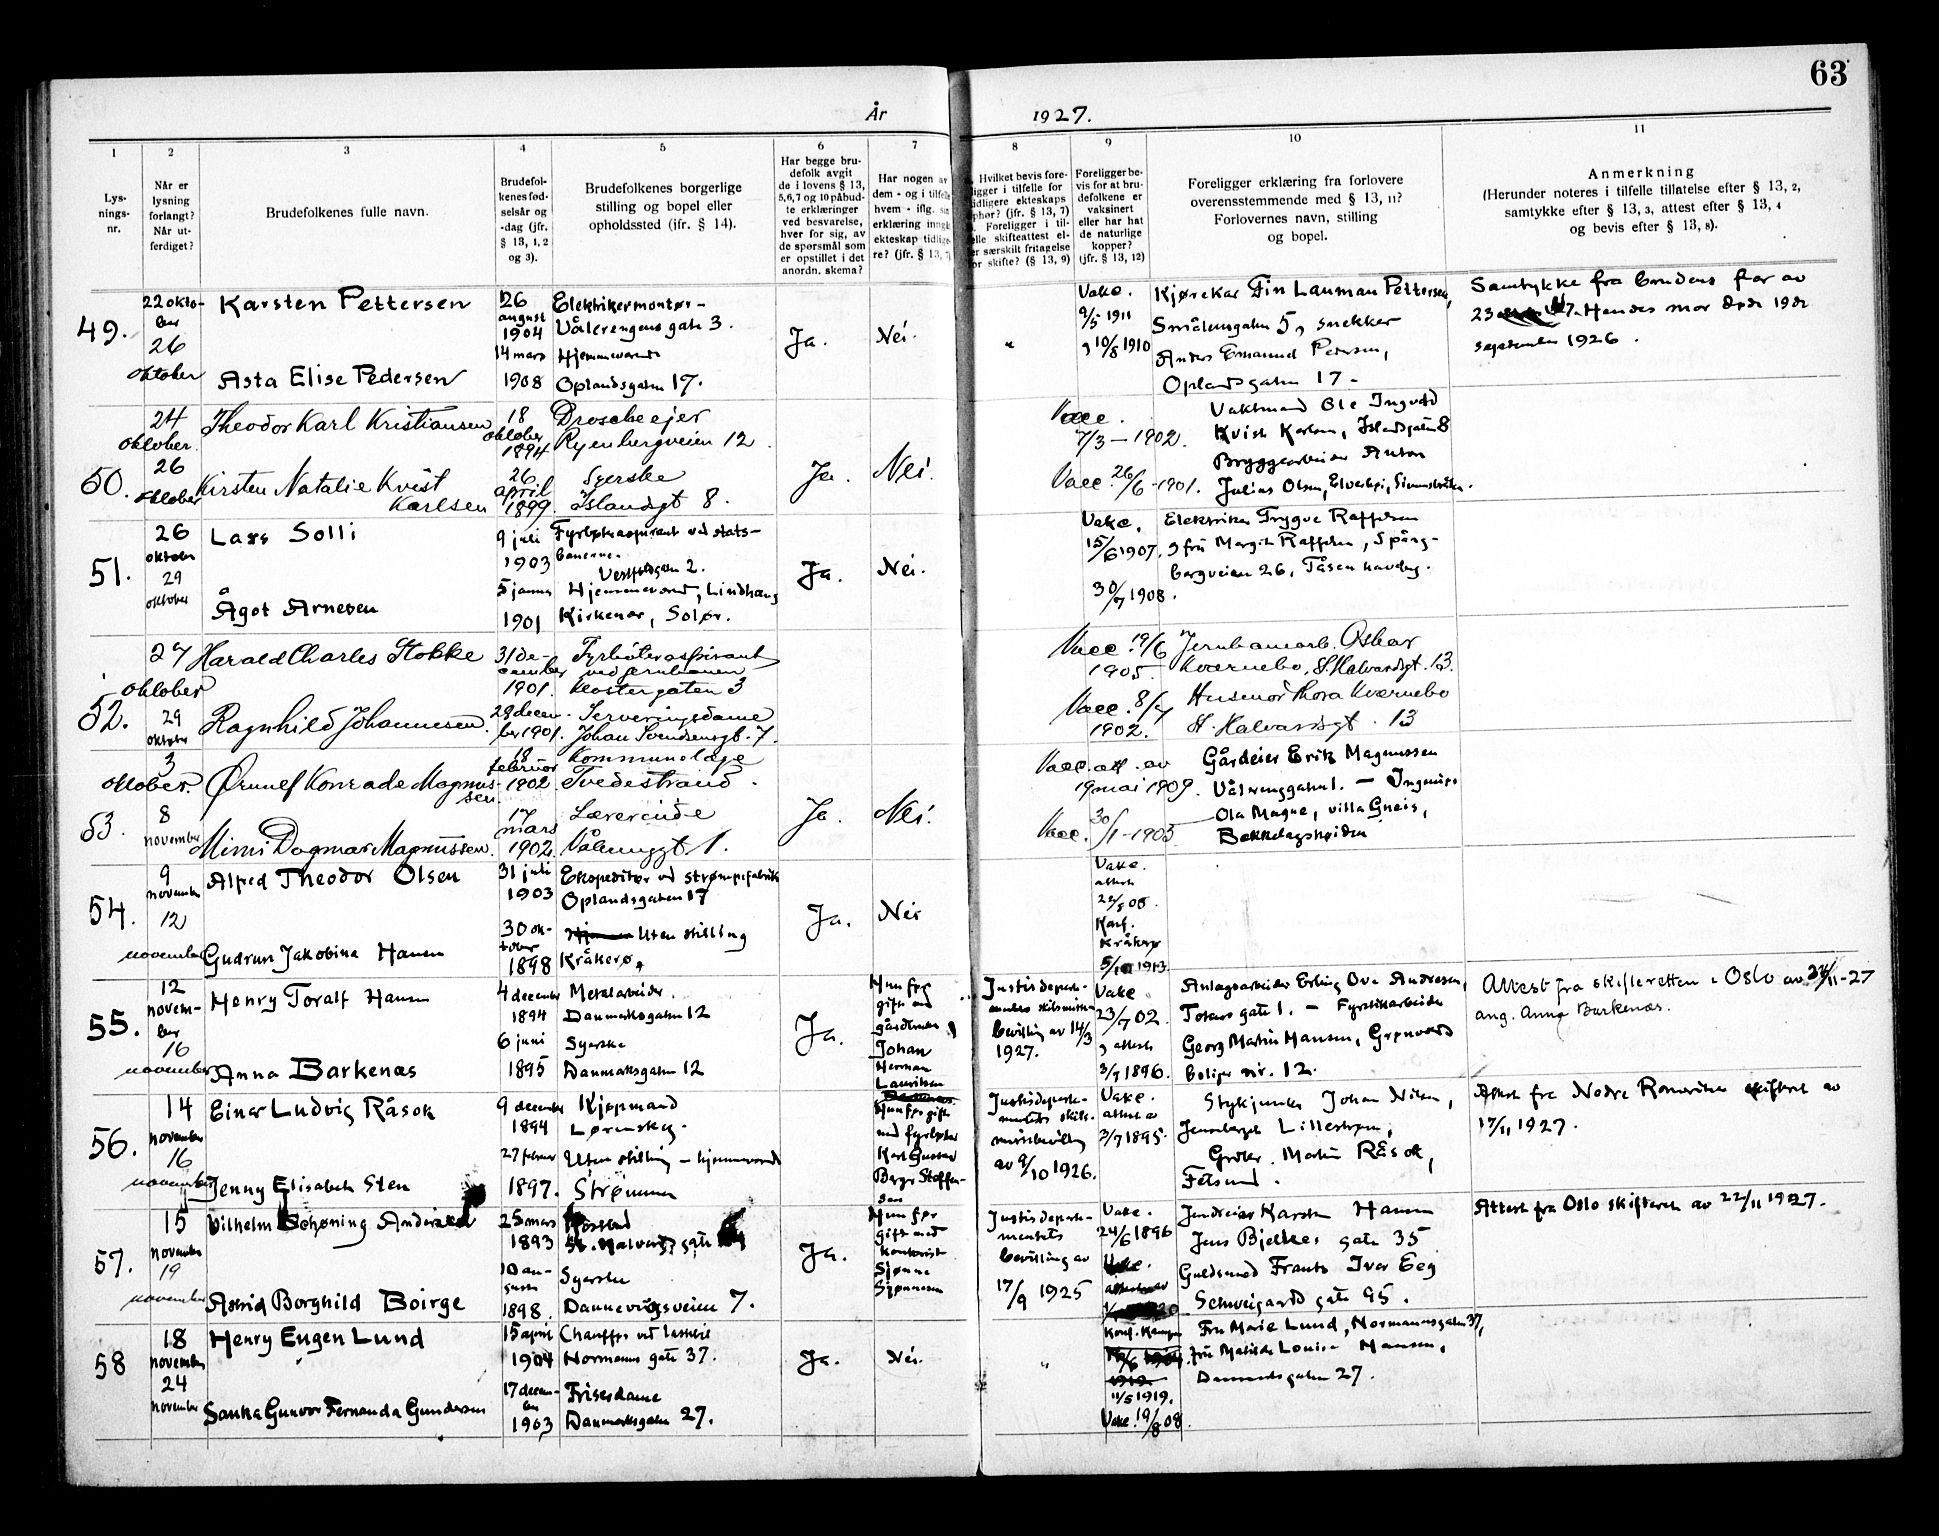 63
År 1927.
1
Lysningsnr.
2
Når er lysning forlangt? Når utferdiget?
3
Brudefolkenes fulle navn.
4
Brudefolkenes fødselsår og -dag (jfr. § 13, 1, 2 og 3).
5
Brudefolkenes borgerlige stilling og bopel eller opholdssted (jfr. § 14).
6
Har begge brudefolk avgit de i lovens § 13, 5,6,7 og 10 påbudte erklæringer ved besvarelse, hver for sig, av de spørsmål som er opstillet i det anordn. skema?
7
Har nogen av dem - og i tilfelle hvem - iflg. sin erklæring inngått ekteskap tidligere? (jfr. § 13, 7)
8
Hvilket bevis foreligger i tilfelle for tidligere ekteskaps ophør? (jfr. § 13, 7)
Foreligger i tilfelle skifteattest eller særskilt fritagelse for skifte? (§ 13, 9)
9
Foreligger bevis for at brudefolkene er vaksinert eller har hat de naturlige kopper? (jfr. § 13, 12)
10
Foreligger erklæring fra forlovere
overensstemmende med § 13, 11?
Forlovernes navn, stilling
og bopel.
11
Anmerkning
(Herunder noteres i tilfelle tillatelse efter § 13, 2,
samtykke efter § 13, 3, attest efter § 13, 4
og bevis efter § 13, 8).
49.
22 oktober
26 oktober
Karsten Pettersen
Asta Elise Pedersen
26 august 1904
14 mars 1908
Elektrikermontør -
Vålerengens gate 3.
Hjemmeværende
Oplandsgaten 17.
Ja.
Nei.
"
Vakc.
9/5 1911
10/8 1910
Kjørekar Fin Lauman Pettersen,
Smålensgaten 5, snekker
Anders Emanuel Pedersen,
Oplandsgaten 17 -
Samtykke fra brudens far av
23 Hendes mor døde 19de
september 1926.
50.
24 oktober.
26 oktober
Theodor Karl Kristiansen
Kirsten Natalie Kvist
Karlsen
18 oktober 1894
26. april 1899
Droscheeier
Ryenbergveien 12
Syerske
Islandsgt 8.
Ja.
Nei.
Vacc.
7/3 - 1902.
Vacc. 26/6 - 1901.
Vaktmand Ole Ingvald
Kvist Karlsen, Islandsgaten 8
Bryggearbeider Anton
Julius Olsen,
51.
26 oktober
29 oktober
Lars Solli
Ågot Arnesen
9 juli 1903
5 januar 1901
Fyrbøteraspirant ved stats-
banerne.
Vestfoldgaten 2.
Hjemmeværend, Lindhaug
Kirkenær, Solør.
Ja.
Nei.
Vakc.
15/6 1907.
30/7 1908.
Elektriker Trygve Raffelsen
og fru Margit Raffelsen, Spång-
bergveien 26, Tåsen haveby.
52.
27 oktober
29 oktober
Harald Charles Stokke
Ragnhild Johannessen.
31 december 1901.
28 december 1901.
Fyrbøteraspirant
ved jernbanen
Klostergaten 3
Serveringsdame
Johan Svendsensgt. 7.
Vacc. 19/6
1905.
Vacc. 8/7
1902.
Jernbanearb. Oskar
Kværnebo, St. Halvardsgt. 13.
Husmor Thora Kværnebo
St. Halvardsgt. 13
53.
3 oktober.
8 november
Ørnulf Konrade Magnus-
sen
Mimi Dagmar Magnussen.
18 februar 1902
17 mars 1902.
Kommunelæge
Tvedestrand.
Lærerinde
Vålerenggt 1.
Ja.
Nei.
Vacc. att. av
19 mai 1909.
Vacc. 30/1 - 1903
Gårdeier Erik Magnussen
Vålerenggaten 1. - Ingeniør
Ola Magne, villa Gneis,
Bekkelagshøiden
54.
9 november
12 november
Alfred Theodor Olsen
Gudrun Jakobine Hansen
31 juli 1903
30 oktober 1898
Ekspeditør ved strømpefabrik
Oplandsgaten 17
Uten stilling
Kråkerø
Ja.
Nei
Vakc.
attest
Konf.
Kråkerø
5/10 1913
55.
12 november
16 november
Henry Toralf Hansen
Anna Barkenæs
4 december 1894
6 juni 1895
Metalarbeider.
Danmarksgaten 12
Syerske
Danmarksgaten 12
Ja.
Hun før
gift med
gårdbruker
Johan
Herman
Lauritsen
Justisdeparte-
mentets skilsmisse
bevilling av 14/3
1927.
Vakc
23/7 02.
og attest
3/7 1896.
Anlagsarbeider Erling Ove Andresen,
Totens gate 1. - Fyrstikarbeider
Georg Martin Hansen, Grønvold
boliger nr. 12.
Attest fra skifteretten i Oslo av 24/11-27
ang. Anna Barkenæs.
56.
14 november
16 november
Einar Ludvig Råsok
Jenny Elisabeth Sten
9 december 1894
27 februar 1897.
Kjøpmand
Lørenskog.
Uten stilling - hjemmeværend
Strømmen
Hun før gift
med fyrbøter
Karl Gustav
Berger Steffen-
sen
Justisdeparte-
mentets skils-
missebevilling
av 9/10 1926.
Vakc.
attest av
3/7 1895.
Stykjunker Johan Nilsen,
Jernbaget Lillestrøm,
Grosser. Martin Råsok,
Fetsund.
Attest fra Nedre Romerike skifteret av
17/11 1927.
57.
15 november
19 november
Vilhelm Schøning Andersen
Astrid Borghild Boirge
25 mars 1893
10 august 1898.
Postbud
St. Halvards gate
Syerske
Dannevigsveien 7.
Ja.
Hun før
gift med
kontorist
Sjønne
Sjønnesen
Justisdeparte-
mentets
bevilling av
17/9 1925
Vakc.
24/6 1896
Vakc.
attest av
Karsten Hansen
Jens Bjelkes gate 35
Guldsmed Frants Iver Eeg
Schweigaards gate 95.
Attest fra Oslo skifteret av 22/11 1927.
58
18 november
24 november
Henry Eugen Lund
Sanka Gunvor Fernanda Gundersen
15 april 1904
17 december 1903
Chauffør ved lastebil
Normanns gate 37.
Frisørdame
Danmarksgaten 27.
Ja.
Nei.
"
Konf. Kampen
11/5 1919.
Vakc. 19/8 08.
Fru Marie Lund, Normannsgaten 37,
fru Matilde Louise Hansen,
Danmarksgaten 27.